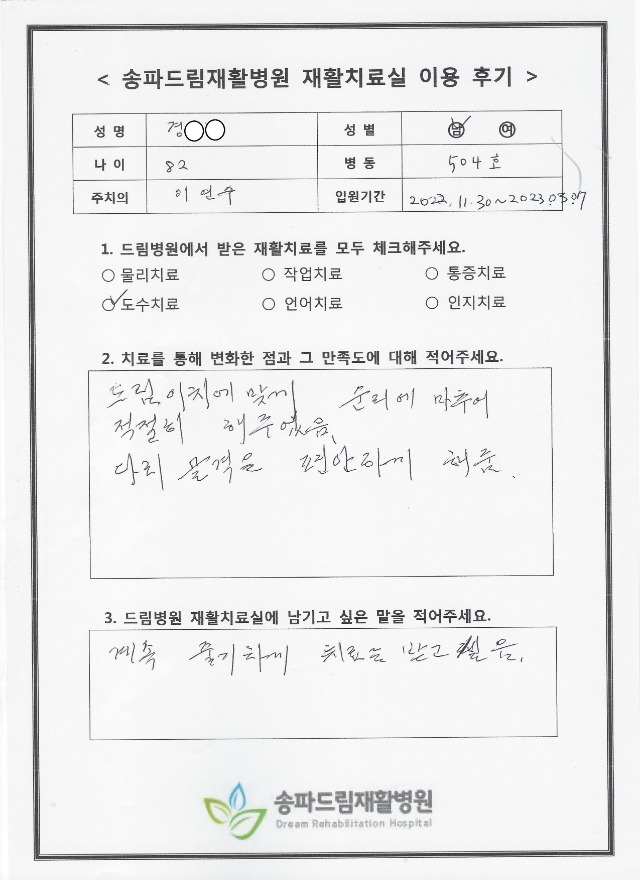 < 송파드림재활병원 재활치료실 이용 후기 >
성 명 경○○ 성 별 남 여
나 이 82 병 동 504호
주치의 이연수 입원기간 2022.11.30~2023.03.07
1. 드림병원에서 받은 재활치료를 모두 체크해주세요.
○ 물리치료 ○ 작업치료 ○ 통증치료
○ 도수치료 ○ 언어치료 ○ 인지치료
2. 치료를 통해 변화한 점과 그 만족도에 대해 적어주세요.
드림이치에 맞게 문리에 마추어
적절히 해주었음.
다리 골격을 편안하게 해줌.
3. 드림병원 재활치료실에 남기고 싶은 말을 적어주세요.
계속 줄기차게 치료는 받고 싶음.
송파드림재활병원
Dream Rehabilitation Hospital